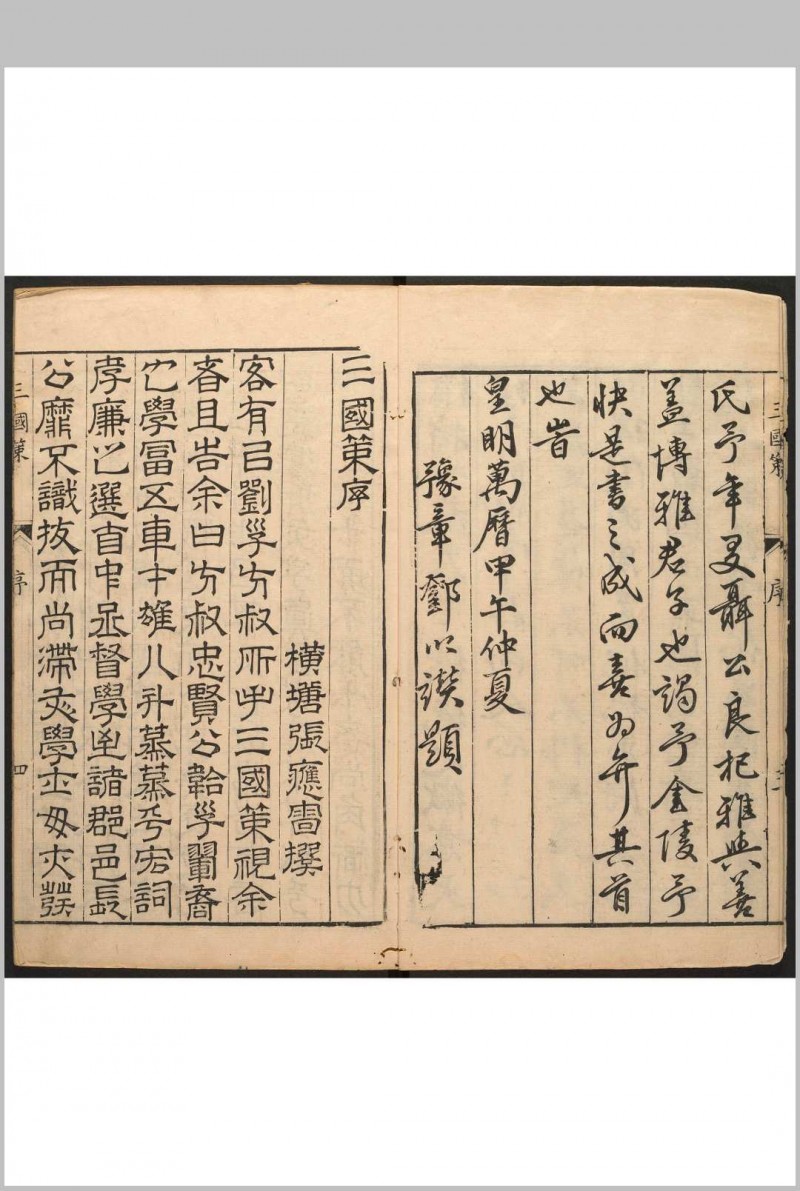 三國策
序
氏予年叟聶公良杞雅與善
蓋博雅君子也謁予金陵予
快是書之成而喜為弁其首
也旹
皇明萬曆甲午仲夏
豫章鄧以讚題
三國策序
橫塘張應撰
客有㠯劉方叔所三國策視余
者且告余曰方叔忠賢公裔
也學富五車才雄八斗宏詞
孝廉之選首中丞督學諸郡邑長
公靡不識拔而尚滯學
三國策
序
四